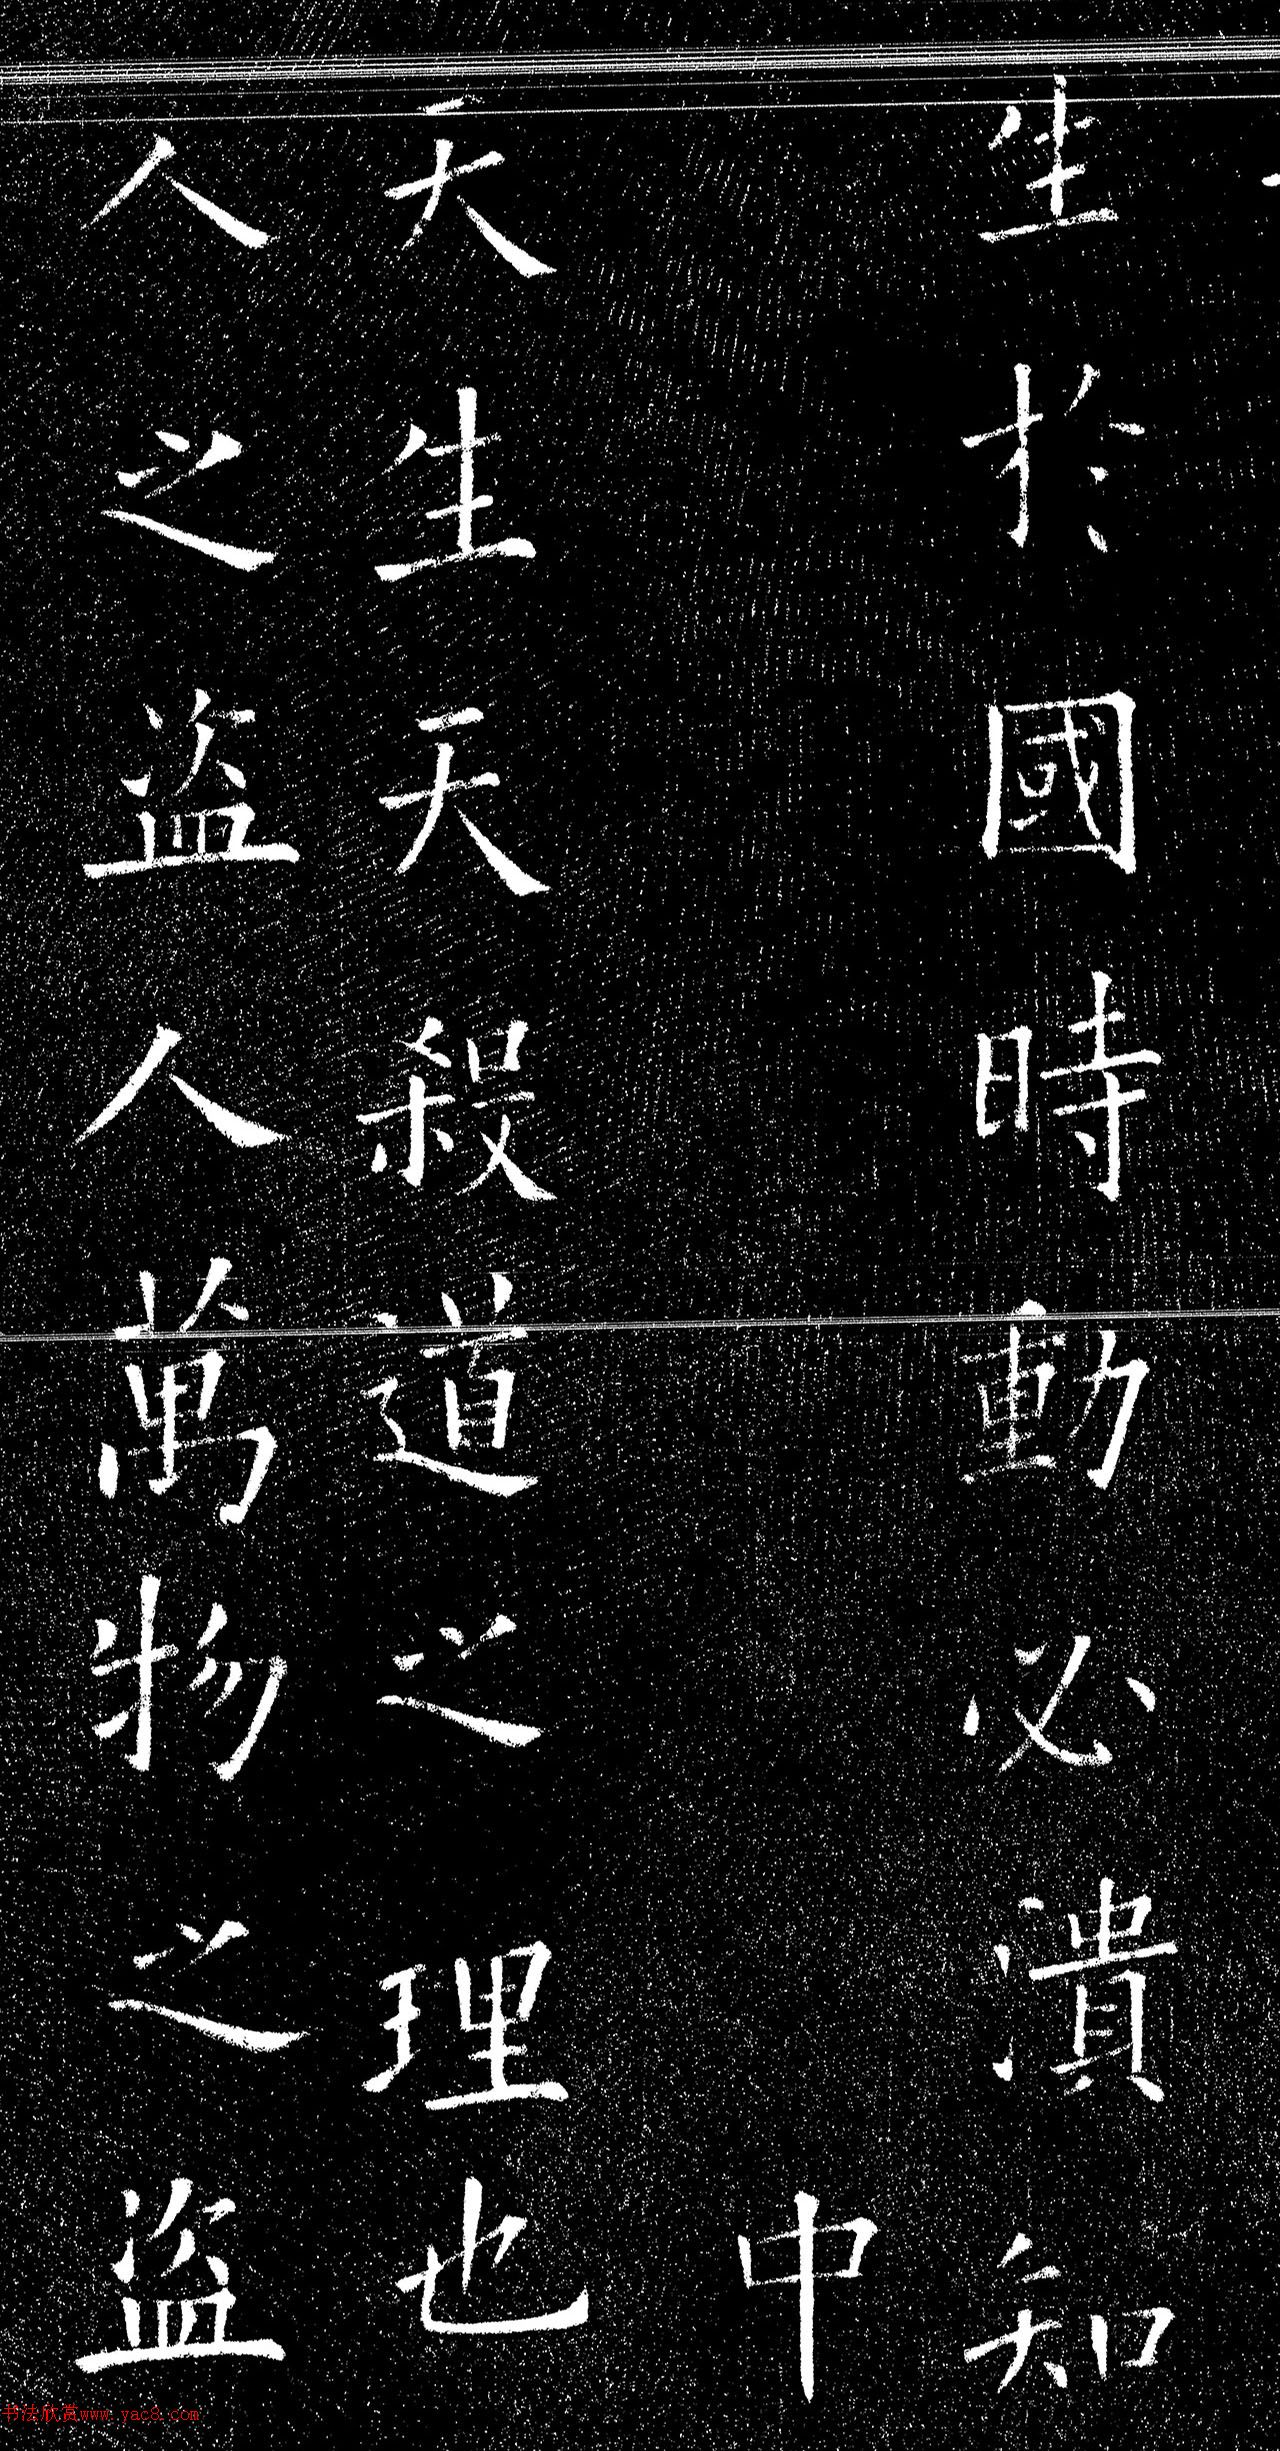 生於國時動必潰知
中
天生天殺道之理也
人之盜人萬物之盜
书法欣赏www.yac8.com